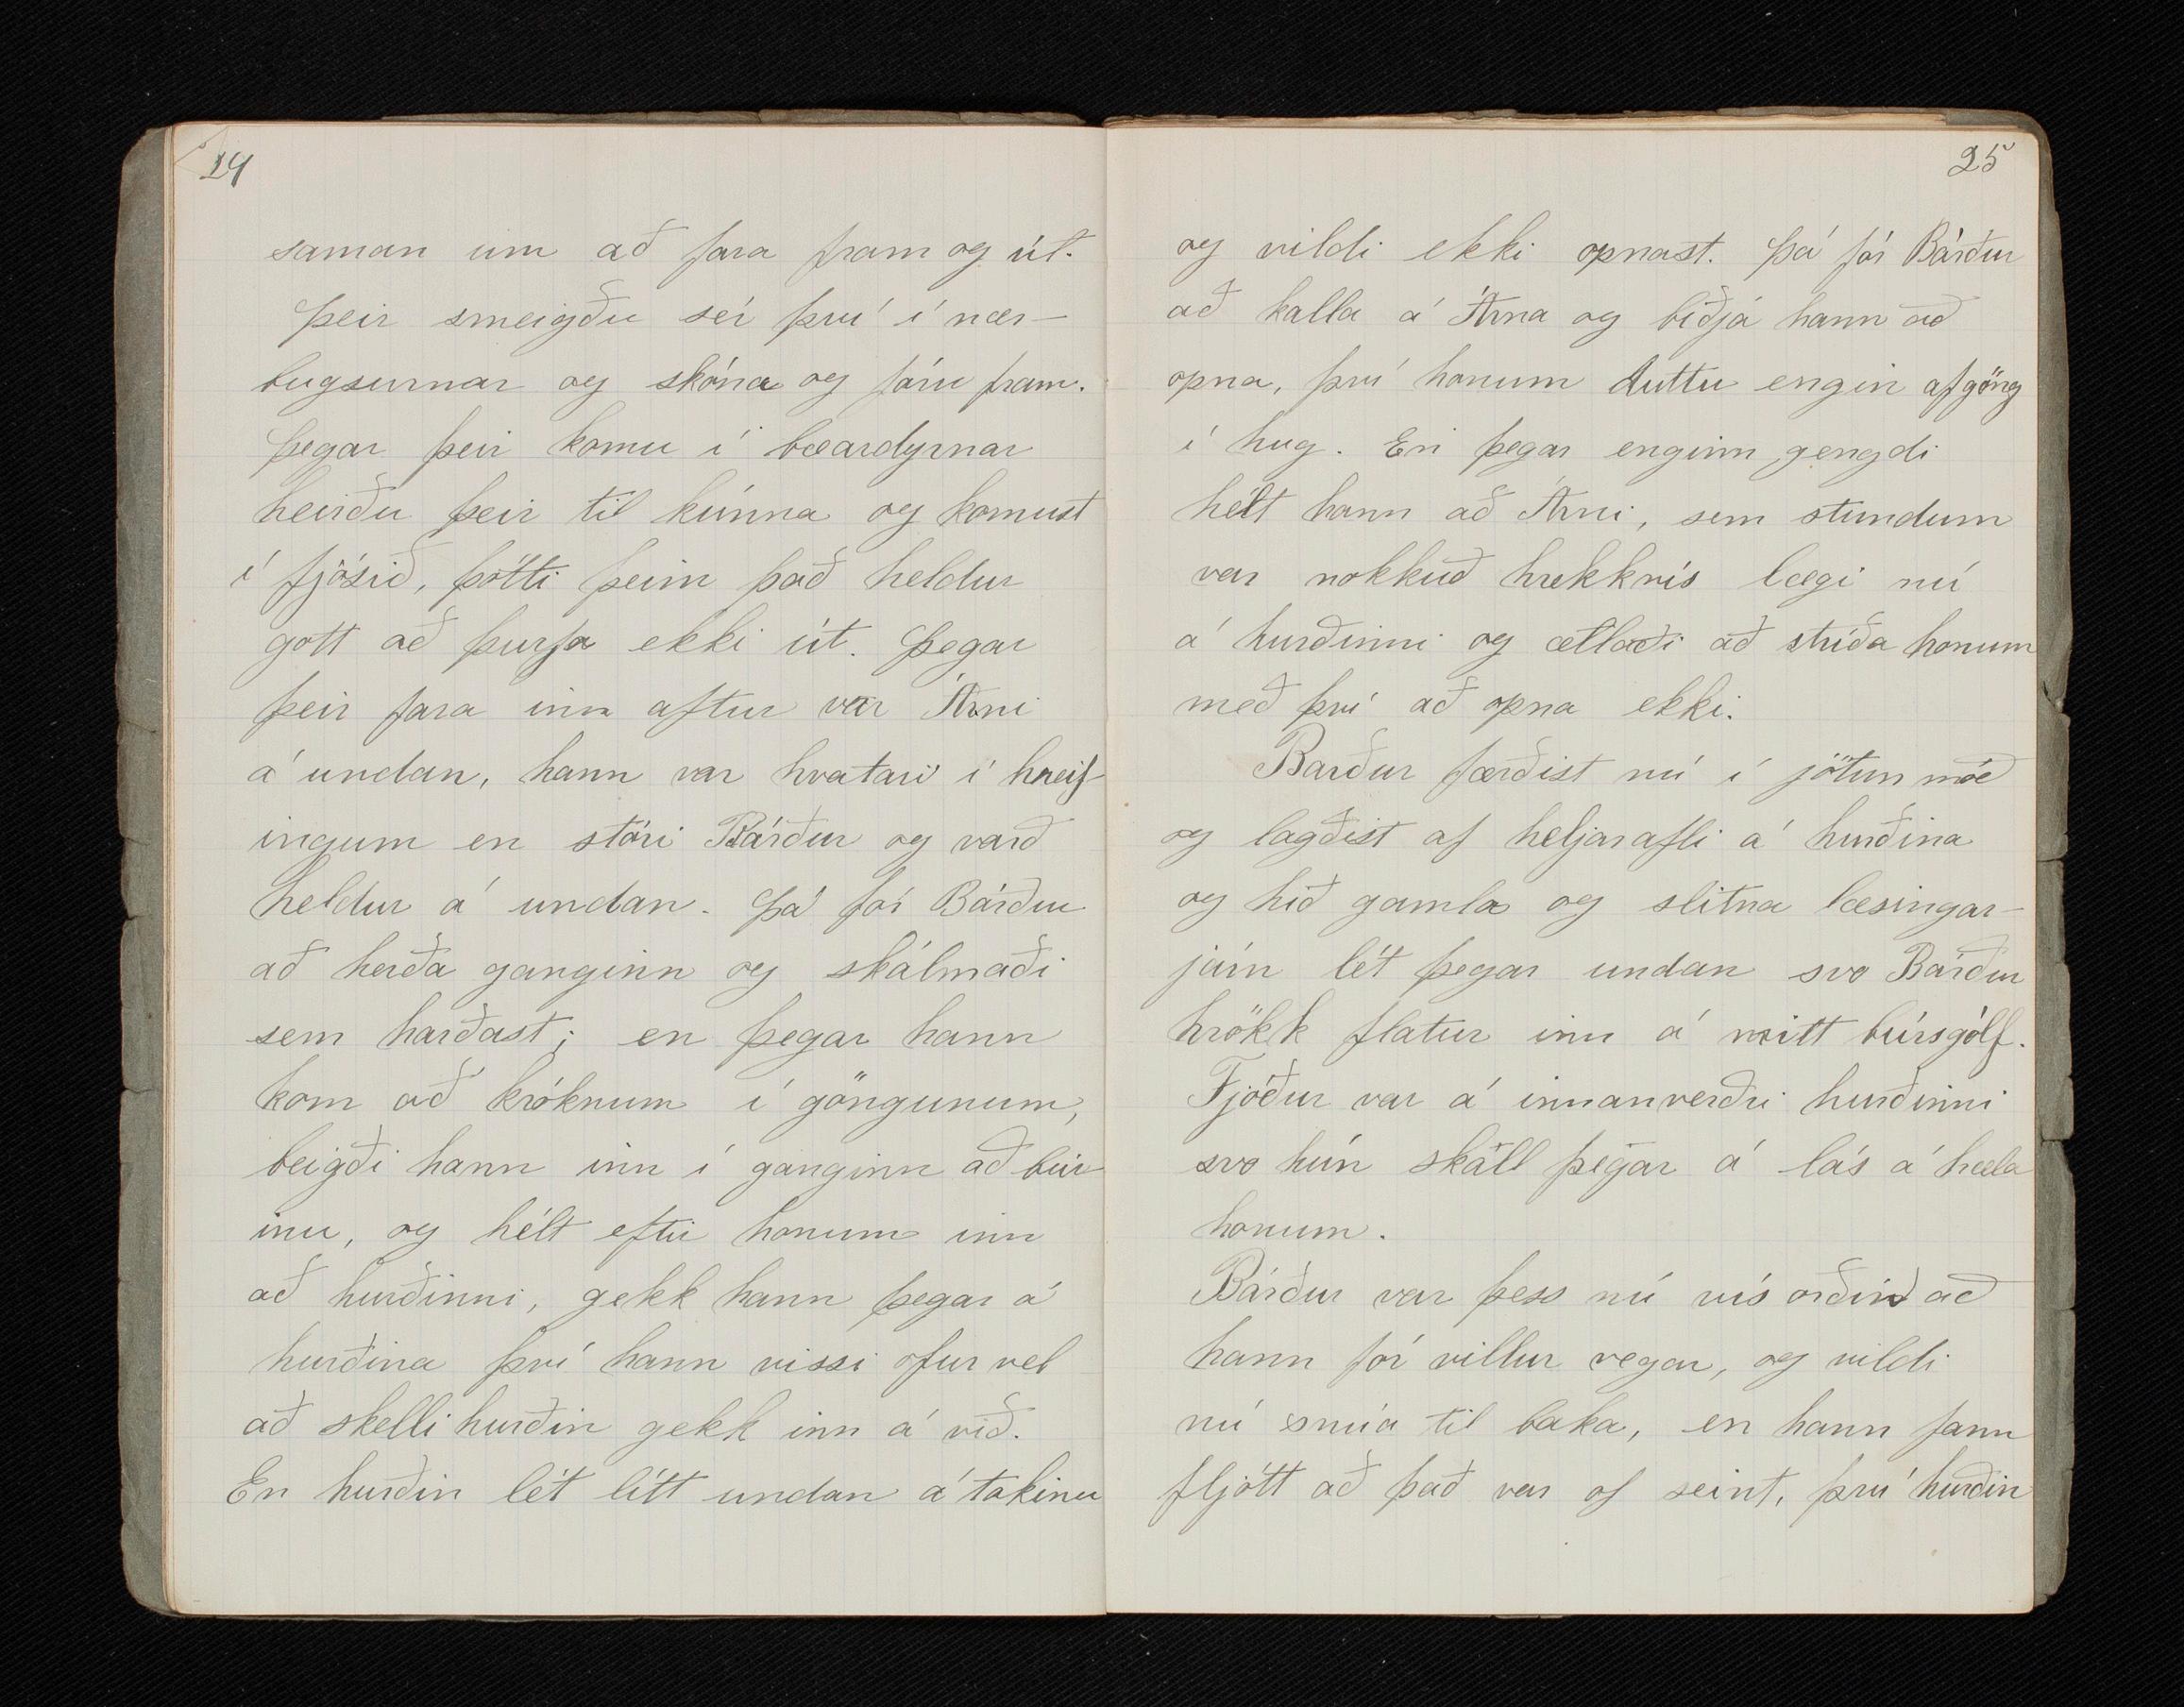 24
saman um að fara fram og út.
Þeir smeigðu sér því í nær-
bugsurnar og skóna og fóru fram.
Þegar þeir komu í bæardyrnar
heirðu þeir til kúnna og komust
í fjósið, þótti þeim það heldur
gott að þurfa ekki út. Þegar
þeir fara inn aftur var Árni
á undan, hann var hvatari í hreif-
ingum en stóri Bárður og varð
heldur á undan. Þá fór Bárður
að herða ganginn og skálmaði
sem harðast; en þegar hann
kom að króknum í göngunum,
beigði hann inn í ganginn að búr
inu, og hélt eftir honum inn
að hurðinni, gekk hann þegar á
hurðina því hann vissi ofur vel
að skelli hurðin gekk inn á við.
En hurðin lét lítt undan á takinu
25
og vildi ekki opnast. Þá fór Bárður
að kalla á Árna og biðja hann að
opna, því honum duttu engin afgöng
í hug. En þegar enginn gengdi
hélt hann að Árni, sem stundum
var nokkuð hrekkvís lægi nú
á hurðinni og ætlaði að stríða honum
með því að opna ekki.
Barður færðist nú í jötun móð
og lagðist af heljarafli á hurðina
og hið gamla og slitna læsingar-
járn lét þegar undan svo Bárður
hrökk flatur inn á mitt búrsgólf.
Fjöður var á innanverðri hurðinni
svo hún skall þegar á lás á hæla
honum.
Bárður var þess nú vís orðið að
hann fór villur vegar, og vildi
nú snúa til baka, en hann fann
fljótt að það var of seint, því hurðin